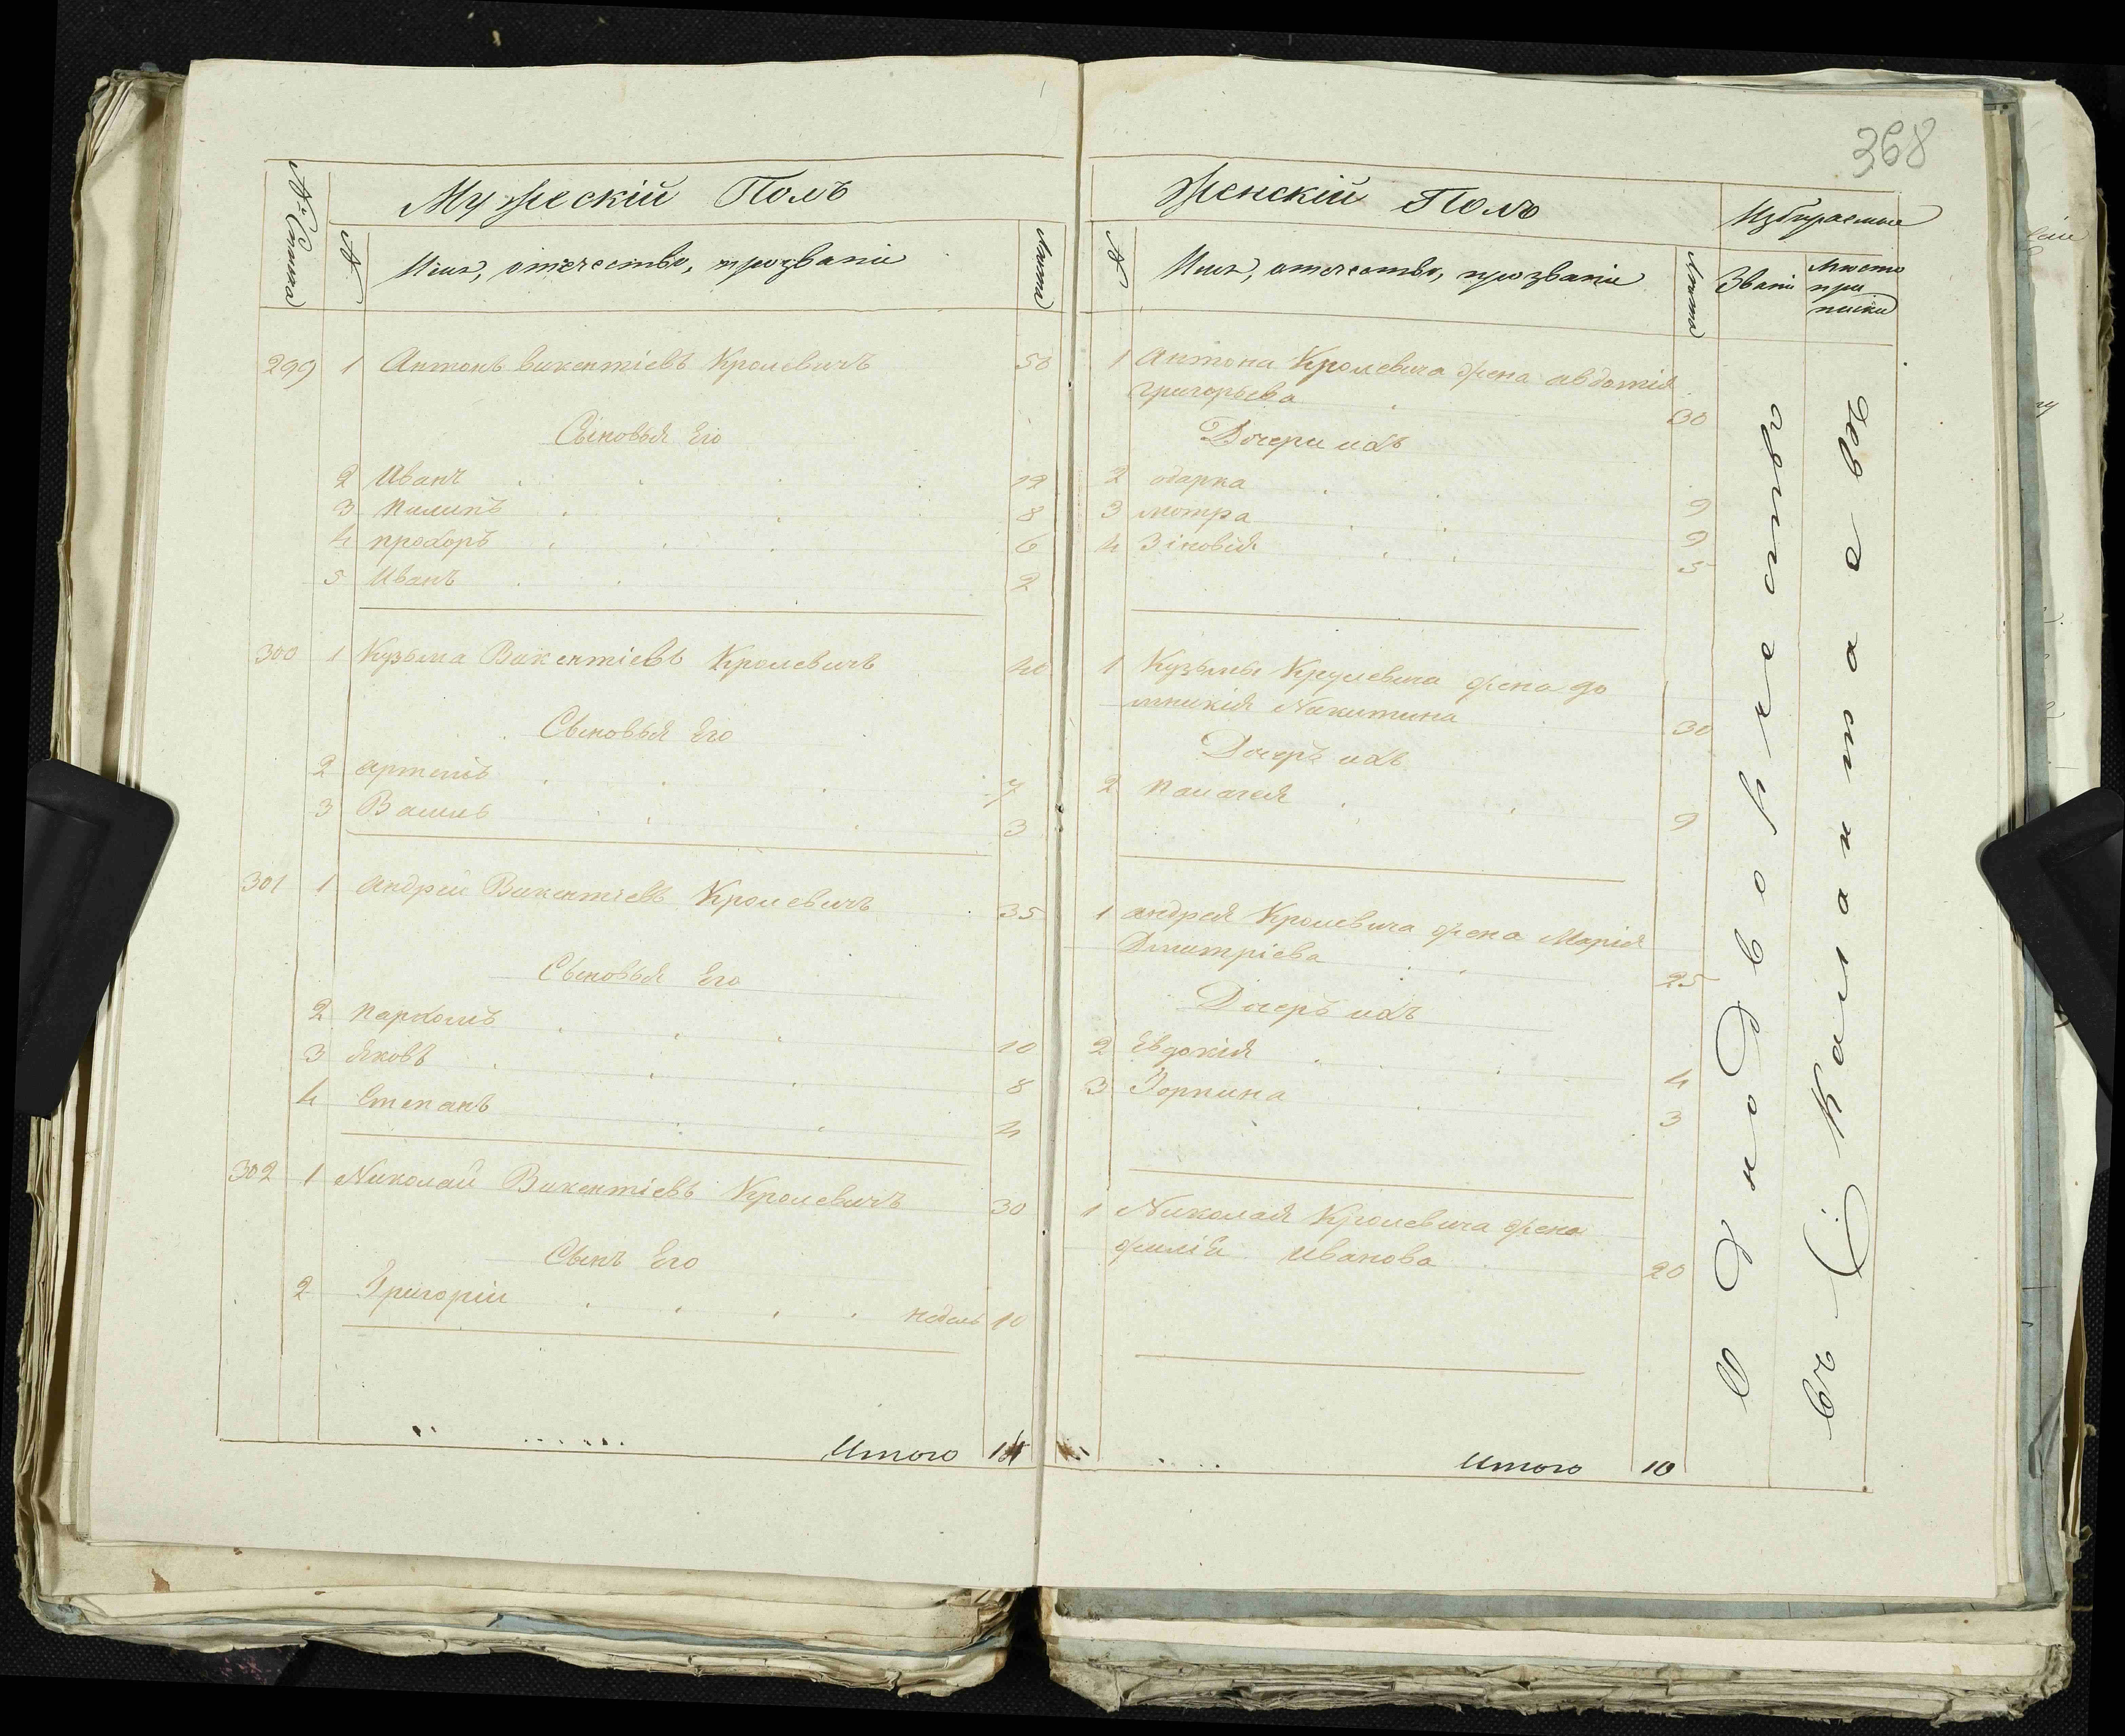 368
№ Списка
Мужескій Полъ
№
Имя, отечество, прозваніе
Лѣта
299 1 Антонъ викентіевъ Кролевичъ 50
Сыновья Его
2 Иванъ 12
3 Пилипъ 8
4 прохоръ 6
5 Иванъ 2
300 1 Кузьма Викентіевъ Кролевичъ 40
Сыновья Его
2 артемъ 7
3 Василь 3
301 1 Андрей Викентіевъ Кролевичъ 35
Сыновья Его
2 пархомъ 10
3 Яковъ 8
4 Степанъ 4
302 1 Николай Викентіевъ Кролевичъ 30
Сынъ Его
2 Григорій недель 10
Итого
Женскій Полъ
№
Имя, отечество, прозваніе
Лѣта
Избираемые
Званіе
Место
при
писки
1 Антона Кролевича жена авдотія
Григорьева 30
Дочери ихъ
2 одарка 9
3 мотра 9
4 Зіновія 5
1 Кузьмы Крулевича жена до
мникія Никитина 30
Дочеръ ихъ
2 Палагея 9
1 андрея Кролевича жена Марія
Дмитріева 25
Дочеръ ихъ
2 Евдокія 4
3 Горпина 3
1 Николая Кролевича жена
Иванова 20
Итого 10
Однодворческого
въ